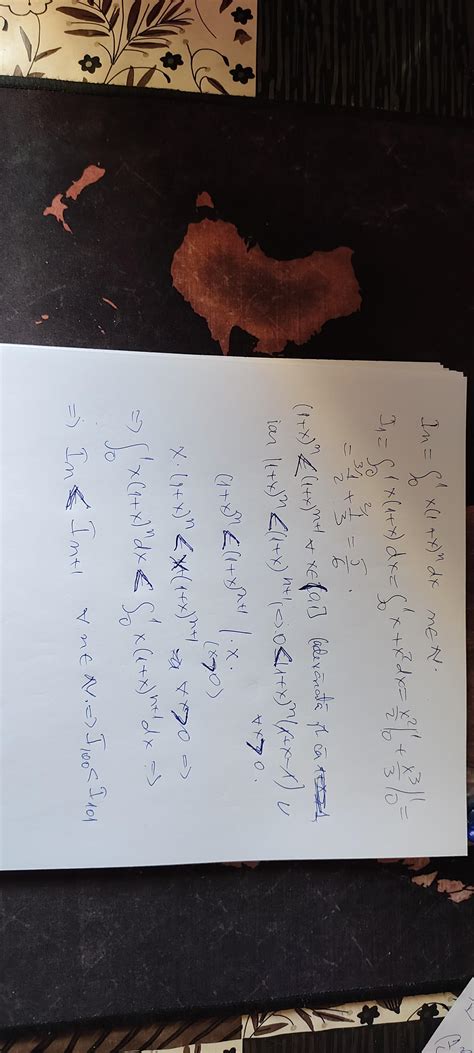 In = ∫₀¹ x(1+x)ⁿ dx  n∈N.
I₁ = ∫₀¹ x(1+x) dx = ∫₀¹ x + x² dx = x²/2 |₀¹ + x³/3 |₀¹ =
= ³⁾1/2 + ²⁾1/3 = 5/6.
(1+x)ⁿ ≤ (1+x)ⁿ⁺¹ ∀ x∈[0,1]
iar (1+x)ⁿ ≤ (1+x)ⁿ⁺¹ ⇔ 0 ≤ (1+x)ⁿ(1+x-1)
∀ x≥0.
(1+x)ⁿ ≤ (1+x)ⁿ⁺¹ | ·x
(x≥0)
x·(1+x)ⁿ ≤ x(1+x)ⁿ⁺¹ ∀ x≥0 ⇒
⇒ ∫₀¹ x(1+x)ⁿ dx ≤ ∫₀¹ x(1+x)ⁿ⁺¹ dx ⇒
⇒ In ≤ In+1 ∀ n∈N. ⇒ I100 < I101